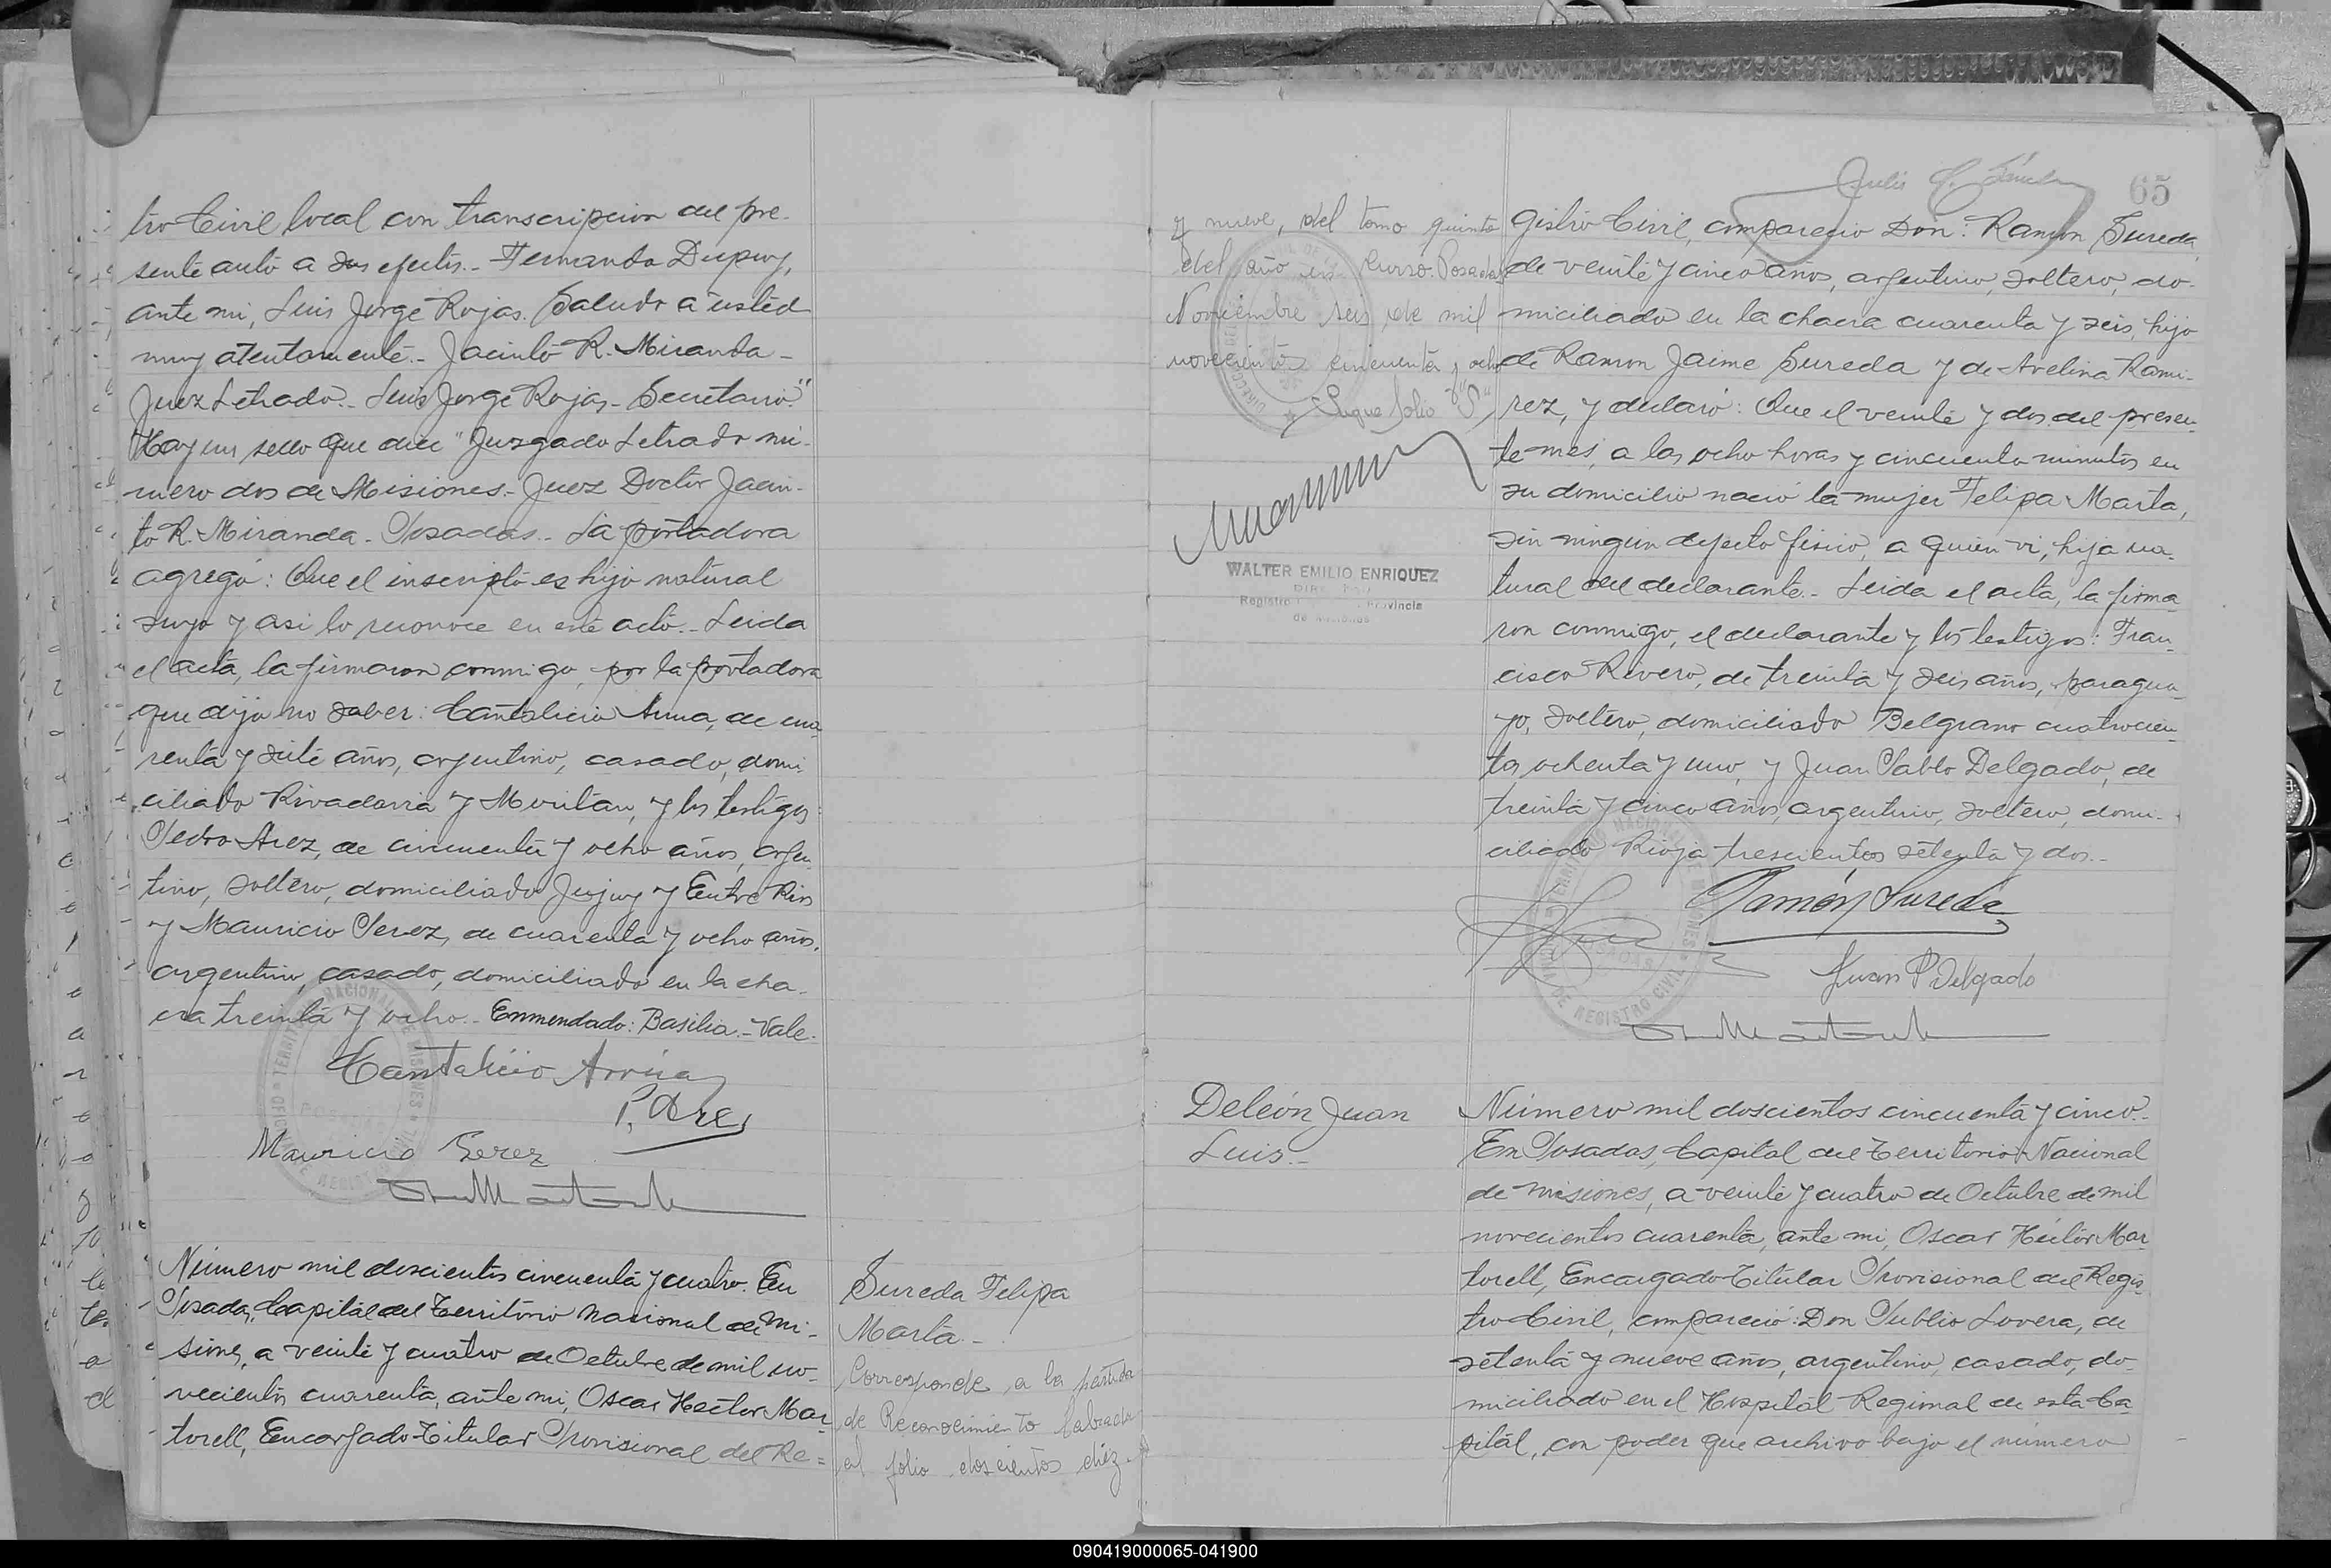 tro Civil local con transcripcion del pre-
sente auto a sus efectos.- Fernando Dupuy,
ante mi, Luis Jorge Rojas. Saludo a usted
muy atentamente.- Jacinto R. Miranda -
Juez Letrado.- Luis Jorge Rojas - Secretario."
Hay un sello que dice "Juzgado Letrado nú-
mero dos de Misiones.- Juez Doctor Jacin-
to R. Miranda - Posadas.- La portadora
agregó: Que el inscripto es hijo natural
suyo y asi lo reconoce en este acto.- Leida
el acta, la firmaron conmigo, por la portadora
que dijo no saber: Cantalicio Arrua, de cua
renta y siete años, argentino, casado, domi-
ciliado Rivadavia y Moritan, y los testigos:
Pedro Arez, de cincuenta y ocho años, argen
tino, soltero, domiciliado Jujuy y Entre Rios
y Mauricio Perez, de cuarenta y ocho años,
argentino, casado, domiciliado en la cha-
cra treinta y ocho.- Enmendado: Basilia.- Vale-
Cantalicio Arrúa
P. Arez
Mauricio Perez
Número mil doscientos cincuenta y cuatro. En
Posadas, Capital del Territorio Nacional de Mi-
siones, a veinte y cuatro de Octubre de mil no-
vecientos cuarenta, ante mi, Oscar Hector Mar
torell, Encargado Titular Provisional del Re=
Sureda Felipa
Marta.-
Corresponde a la partida
de Reconocimiento labrada
al folio doscientos diez
65
y nueve, del tomo quinto
del año en curso. Posadas
Noviembre seis de mil
novecientos cincuenta y ocho
Sigue folio "S"
WALTER EMILIO ENRIQUEZ
Registro Provincia
de Misiones
gistro Civil, compareció Don: Ramon Sureda,
de veinte y cinco años, argentino, soltero, do-
miciliado en la chacra cuarenta y seis, hijo
de Ramon Jaime Sureda y de Avelina Rami-
rez, y declaró: Que el veinte y dos del presen-
te mes, a las ocho horas y cincuenta minutos en
su domicilio nació la mujer Felipa Marta,
sin ningun defecto fisico, a quien vi, hija na-
tural del declarante.- Leida el acta, la firma
ron conmigo, el declarante y los testigos: Fran-
cisco Rivero, de treinta y seis años, paragua-
yo, soltero, domiciliado Belgrano cuatrocien-
tos ochenta y uno, y Juan Pablo Delgado, de
treinta y cinco años, argentino, soltero, domi-
ciliado Rioja trescientos setenta y dos.-
Ramón Sureda
Juan P Delgado
Deleón Juan
Luis.-
Número mil doscientos cincuenta y cinco.-
En Posadas, Capital del Territorio Nacional
de Misiones, a veinte y cuatro de Octubre de mil
novecientos cuarenta, ante mi, Oscar Héctor Mar
torell, Encargado Titular Provisional del Regis-
tro Civil, compareció: Don Publio Lovera, de
setenta y nueve años, argentino, casado, do-
miciliado en el Hospital Regional de esta Ca
pital, con poder que archivo bajo el número
090419000065-041900